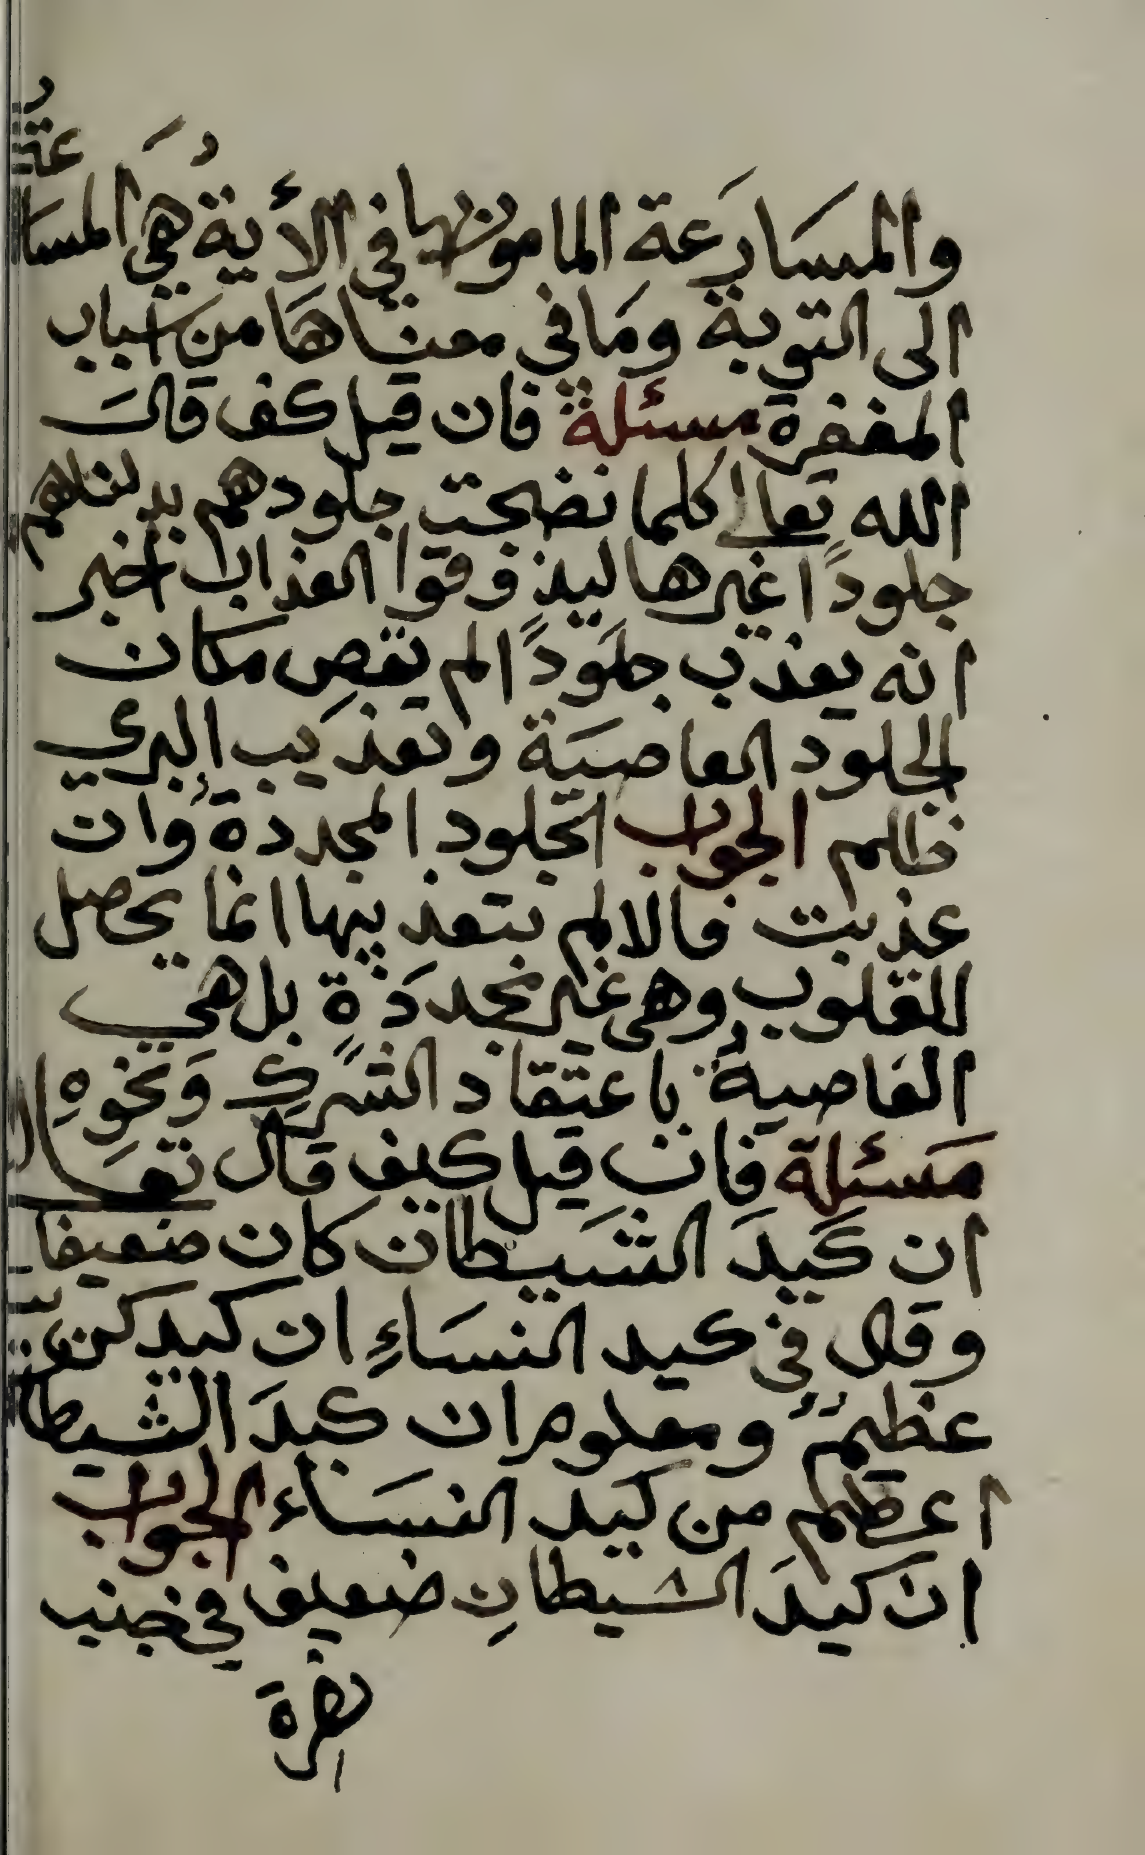 والمسَارَعة المامور بها في الأية هي المسارعَةُ
الى التوبة ومَا في معناهَا من اسباب
المغفرة مسئلة فان قيل كف قالَ
الله تعالى كلما نضجت جلودهم بدلناهم
جلودًا غيرها ليذوقوا العذاب اخبر
انه يعذب جلَودًا لم يعص مكان
الجلود العاصيَة وتعذيب البري
ظلم الجواب الجلود المجددة وان
عذبت فالالم بتعذيبها انما يحصل
للقلوب وهي غير مجددَةٍ بل هي
العَاصيةُ باعتقاد الشركِ وَنحَوِهِ
مَسئلة فان قيل كيف قال تعَالى
ان كَيدَ الشيطان كان ضعيفا
وقال في كيد النسَاءِ ان كيدكن
عظيمٌ ومعلوم ان كيدَ الشيطان
اعظم من كَيد النسَاء الجواب
ان كيدَ الشيطانِ ضعيف في جنب
نصرة